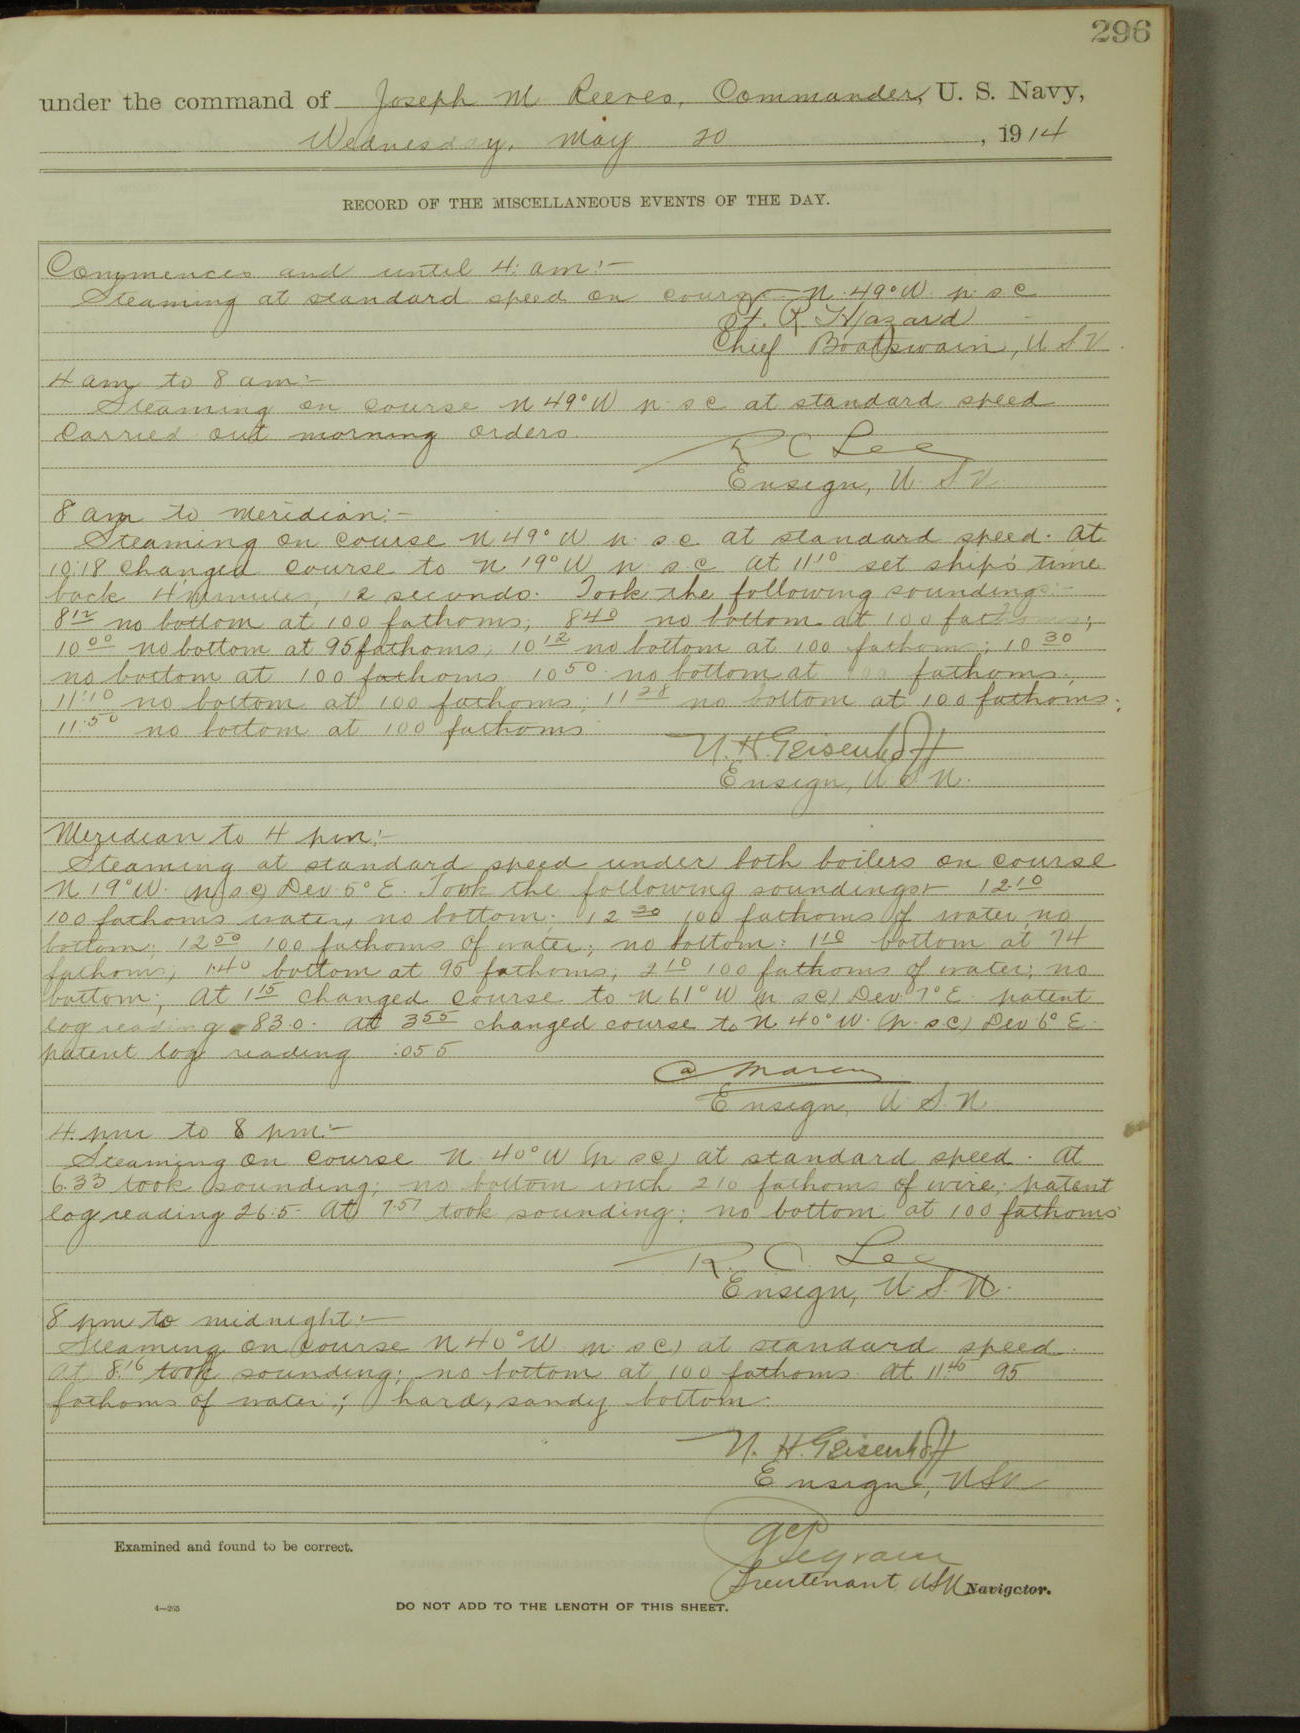 296
under the command of Joseph M Reeves, Commander, U. S. Navy,
Wednesday, May 20, 1914
RECORD OF THE MISCELLANEOUS EVENTS OF THE DAY.
Commences and until 4 am:-
Steaming at standard speed on course N 49° W p s c
R Hazard
Chief Boatswain, U S N
4 am to 8 am:-
Steaming on course N 49° W p s c at standard speed
Carried out morning orders.
R C Lee
Ensign, U. S N
8 am to Meridian:-
Steaming on course N 49° W p. s.c. at standard speed. At
10:18 changed course to N 19° W p s.c at 11 10 set ship's time
back 4 minutes, 12 seconds. Took the following soundings:-
8 12 no bottom at 100 fathoms; 8 40 no bottom at 100 fathoms;
10 00 no bottom at 95 fathoms, 10 12 no bottom at 100 fathoms; 10 30
no bottom at 100 fathoms 10 50 no bottom at 100 fathoms;
11:10 no bottom at 100 fathoms; 11 28 no bottom at 100 fathoms;
11:50 no bottom at 100 fathoms
N. H. Geisenhoff
Ensign, U S N.
Meridian to 4 pm:-
Steaming at standard speed under both boilers on course
N 19° W. (p s c) Dev 5° E. Took the following soundings:- 12 10
100 fathoms water, no bottom; 12 30 100 fathoms of water no
bottom; 12 50 100 fathoms of water; no bottom: 1 10 bottom at 74
fathoms; 1:40 bottom at 95 fathoms; 2 10 100 fathoms of water; no
bottom; At 1 15 changed course to N 61° W (p sc) Dev 7° E. patent
log reading 83.0. At 3 55 changed course to N 40° W. (p. s.c) Dev 6° E.
patent log reading 05 5
Ensign, U. S. N.
4 pm to 8 pm:-
Steaming on course N 40° W (p sc) at standard speed. At
6.33 took sounding; no bottom with 210 fathoms of wire; patent
log reading 26.5. At 7.57 took sounding; no bottom at 100 fathoms
R. C. Lee
Ensign, U. S. N.
8 pm to midnight:-
Steaming on course N 40° W (p. s c) at standard speed.
At 8.16 took sounding; no bottom at 100 fathoms. At 11 40 95
fathoms of water; hard, sandy bottom.
N. H. Geisenhoff
Ensign, U S N
Examined and found to be correct.
Lieutenant USN Navigator.
4—265
DO NOT ADD TO THE LENGTH OF THIS SHEET.